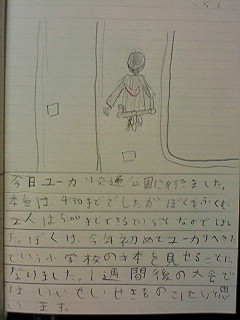 今日ユーカリ交通公園に行きました。
本当は、4:30まででしたがぼくをふくむ
2人は5:00までできるということなのでしまし
た。ぼくは、今年初めてユーカリへきた
という小学校の手本を見せることに
なりました。1週間後の大会で
はいいせいせきをのこしたいと思
います。